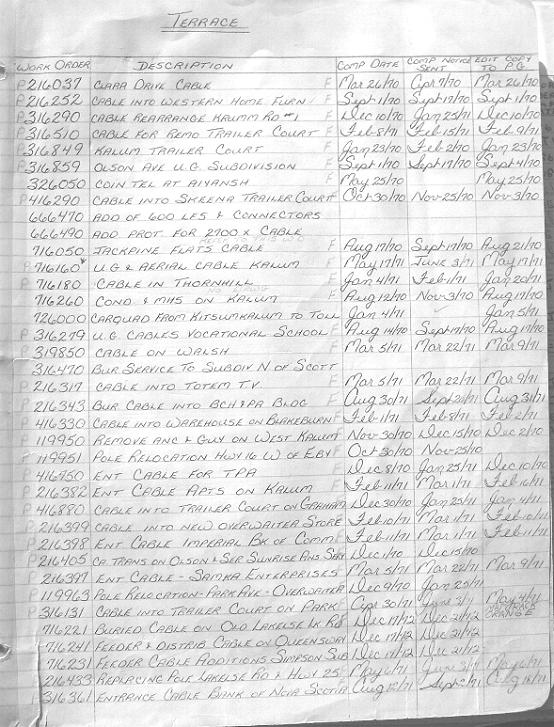 TERRACE
WORK ORDER DESCRIPTION COMP DATE COMP NOTICE SENT EDIT COPY TO P.G.
P216037 CLARA DRIVE CABLE F Mar 26/70 Apr 7/70 Mar 26/70
P216252 CABLE INTO WESTERN HOME FURN F Sept 1/70 Sept 17/70 Sept 1/70
P316290 CABLE REARRANGE KALUM RD #1 F Dec 10/70 Jan 25/71 Dec 10/70
P316510 CABLE FOR REMO TRAILER COURT F Feb 8/71 Feb 15/71 Feb 9/71
P316849 KALUM TRAILER COURT F Jan 23/70 Feb 2/70 Jan 23/70
P316859 OLSON AVE U.G. SUBDIVISION F Sept 1/70 Sept 17/70 Sept 4/70
326050 COIN TEL AT AIYANSH May 25/70 May 25/70
P416290 CABLE INTO SKEENA TRAILER COURT Oct 30/70 Nov 25/70 Nov 3/70
666470 ADD OF 600 LFS & CONNECTORS
666490 ADD PROT FOR 2700 X CABLE
716050 JACKPINE FLATS CABLE F Aug 17/70 Sept 17/70 Aug 21/70
P716160 U.G & AERIAL CABLE KALUM F May 17/71 June 3/71 May 17/71
P716180 CABLE IN THORNHILL F Jan 4/71 Feb 1/71 Jan 20/71
716260 COND & M/HS ON KALUM F Aug 12/70 Nov 3/70 Aug 17/70
726000 CARQUAD FROM KITSUMKALUM TO TOLL Jan 4/71 Jan 5/71
P316279 U.G. CABLES VOCATIONAL SCHOOL F Aug 14/70 Sept 17/70 Aug 17/70
319850 CABLE ON WALSH F Mar 5/71 Mar 22/71 Mar 9/71
316470 BUR SERVICE TO SUBDIV N OF SCOTT
P216317 CABLE INTO TOTEM TV F Mar 5/71 Mar 22/71 Mar 9/71
P216343 BUR CABLE INTO BCH&PA BLDG F Aug 30/71 Sept 24/71 Aug 31/71
P416330 CABLE INTO WAREHOUSE ON BLAKEBURN F Feb 1/71 Feb 8/71 Feb 2/71
119950 REMOVE ANC & GUY ON WEST KALUM F Nov 30/70 Dec 15/70 Dec 2/70
119951 POLE RELOCATION HWY 16 W OF EBY F Oct 30/70 Nov 25/70
P416950 ENT CABLE FOR TPA F Dec 8/70 Jan 25/71 Dec 10/70
P216382 ENT CABLE APTS ON KALUM F Feb 11/71 Mar 1/71 Feb 16/71
P416890 CABLE INTO TRAILER COURT ON GRAHAM F Dec 30/70 Jan 25/71 Jan 4/71
P216399 CABLE INTO NEW OVERWAITER STORE F Feb 10/71 Mar 1/71 Feb 10/71
P216398 ENT CABLE IMPERIAL BK OF COMM F Feb 11/71 Mar 1/71 Feb 11/71
P216405 CA TRANS ON OLSON & SER SUNRISE ANS SER F Dec 1/70 Dec 15/70
216397 ENT CABLE - SAMKA ENTERPRISES F Mar 5/71 Mar 22/71 Mar 9/71
P119963 POLE RELOCATION - PARK AVE - OVERWAITER F Dec 9/70 Jan 25/71
P316131 CABLE INTO TRAILER COURT ON PARK F Apr 30/71 June 3/71 May 4/71
716221 BURIED CABLE ON OLD LAKELSE LK RD F Dec 17/12 Dec 21/12
716241 FEEDER & DISTRIB CABLE ON QUEENSWAY F Dec 17/12 Dec 21/12
716231 FEEDER CABLE ADDITIONS SIMPSON SUB F Dec 17/12 Dec 21/12
216433 REPLACING POLE LAKELSE RD & HWY 25 F May 6/71 June 3/71 May 6/71
316361 ENTRANCE CABLE BANK OF NOVA SCOTIA F Aug 12/71 Sept 2/71 Aug 18/71